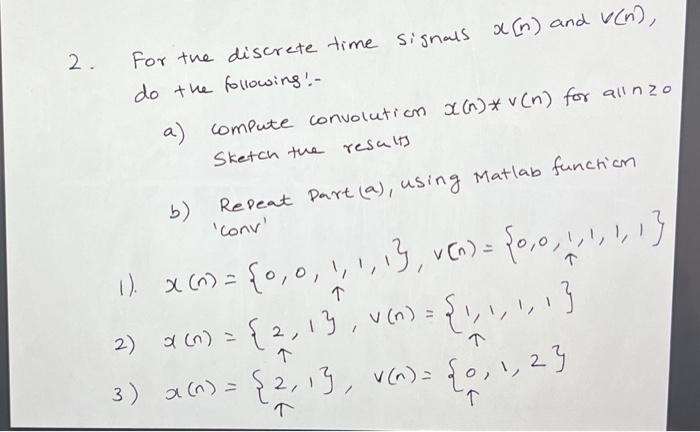 2. For the discrete time signals x(n) and v(n),
do the following:-
a) compute convolution x(n)*v(n) for all n≥0
Sketch the results
b) Repeat Part (a), using Matlab function
'conv'
1). x(n) = {0,0,1,1,1}, v(n) = {0,0,1,1,1,1}
↑ ↑
2) x(n) = {2,1}, v(n) = {1,1,1,1}
↑ ↑
3) x(n) = {2,1}, v(n) = {0,1,2}
↑ ↑